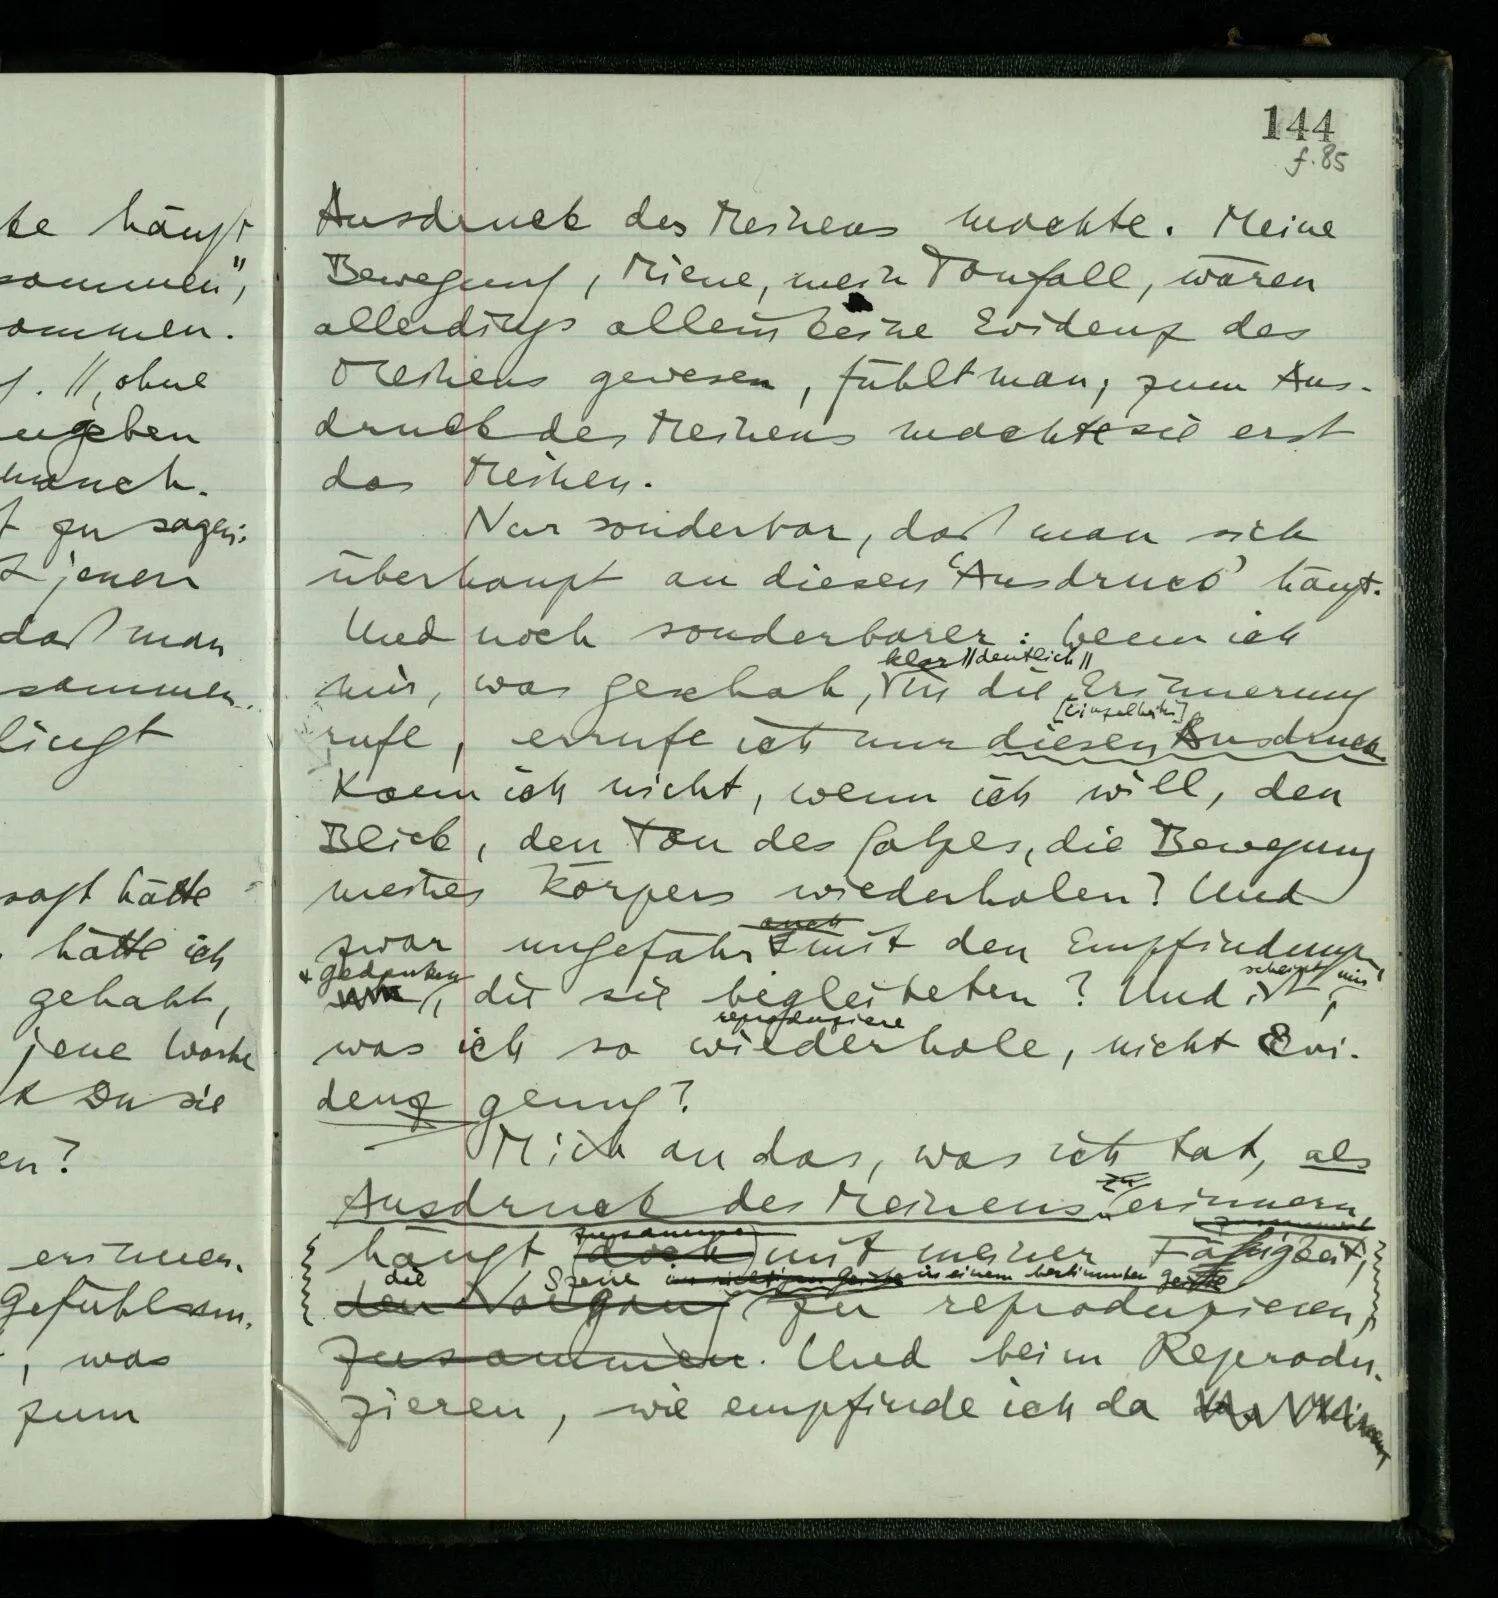 144
f. 85
ke hängt
sommen",
ommen.
. // , ohne
ugeben
manch.
t zu sagen:
jenen
daß man
sammen
lingt
sagt hätte
hätte ich
gehabt,
jene Worte
Du sie
en?
erinner-
Gefühl
, was
zum
Ausdruck des Meinens machte. Meine
Bewegung, Miene, mein Tonfall, wären
allerdings allein keine Evidenz des
Meinens gewesen, fühlt man, zum Aus-
druck des Meinens machte sie erst
das Meinen.
Nur sonderbar, daß man sich
überhaupt an diesen 'Ausdruck' hängt.
Und noch sonderbarer: wenn ich
klar // deutlich //
mir, was geschah, in die Erinnerung
[Einzelheiten]
rufe, errufe ich nur diesen Ausdruck
Kann ich nicht, wenn ich will, den
Blick, den Ton des Satzes, die Bewegung
meines Körpers wiederholen? Und
auch
zwar ungefähr mit den Empfindungen,
Gedanken scheint mir
, die sie begleiteten? Und ist,
reproduziere
was ich so wiederhole, nicht Evi-
denz genug?
Mich an das, was ich tat, als
zu
Ausdruck des Meinens erinnern,
zusammen
hängt doch mit meiner Fähigkeit,
die Szene im richtigen Geiste in einem bestimmten Geiste
den Vorgang zu reproduzieren,
zusammen. Und beim Reprodu-
zieren, wie empfinde ich da